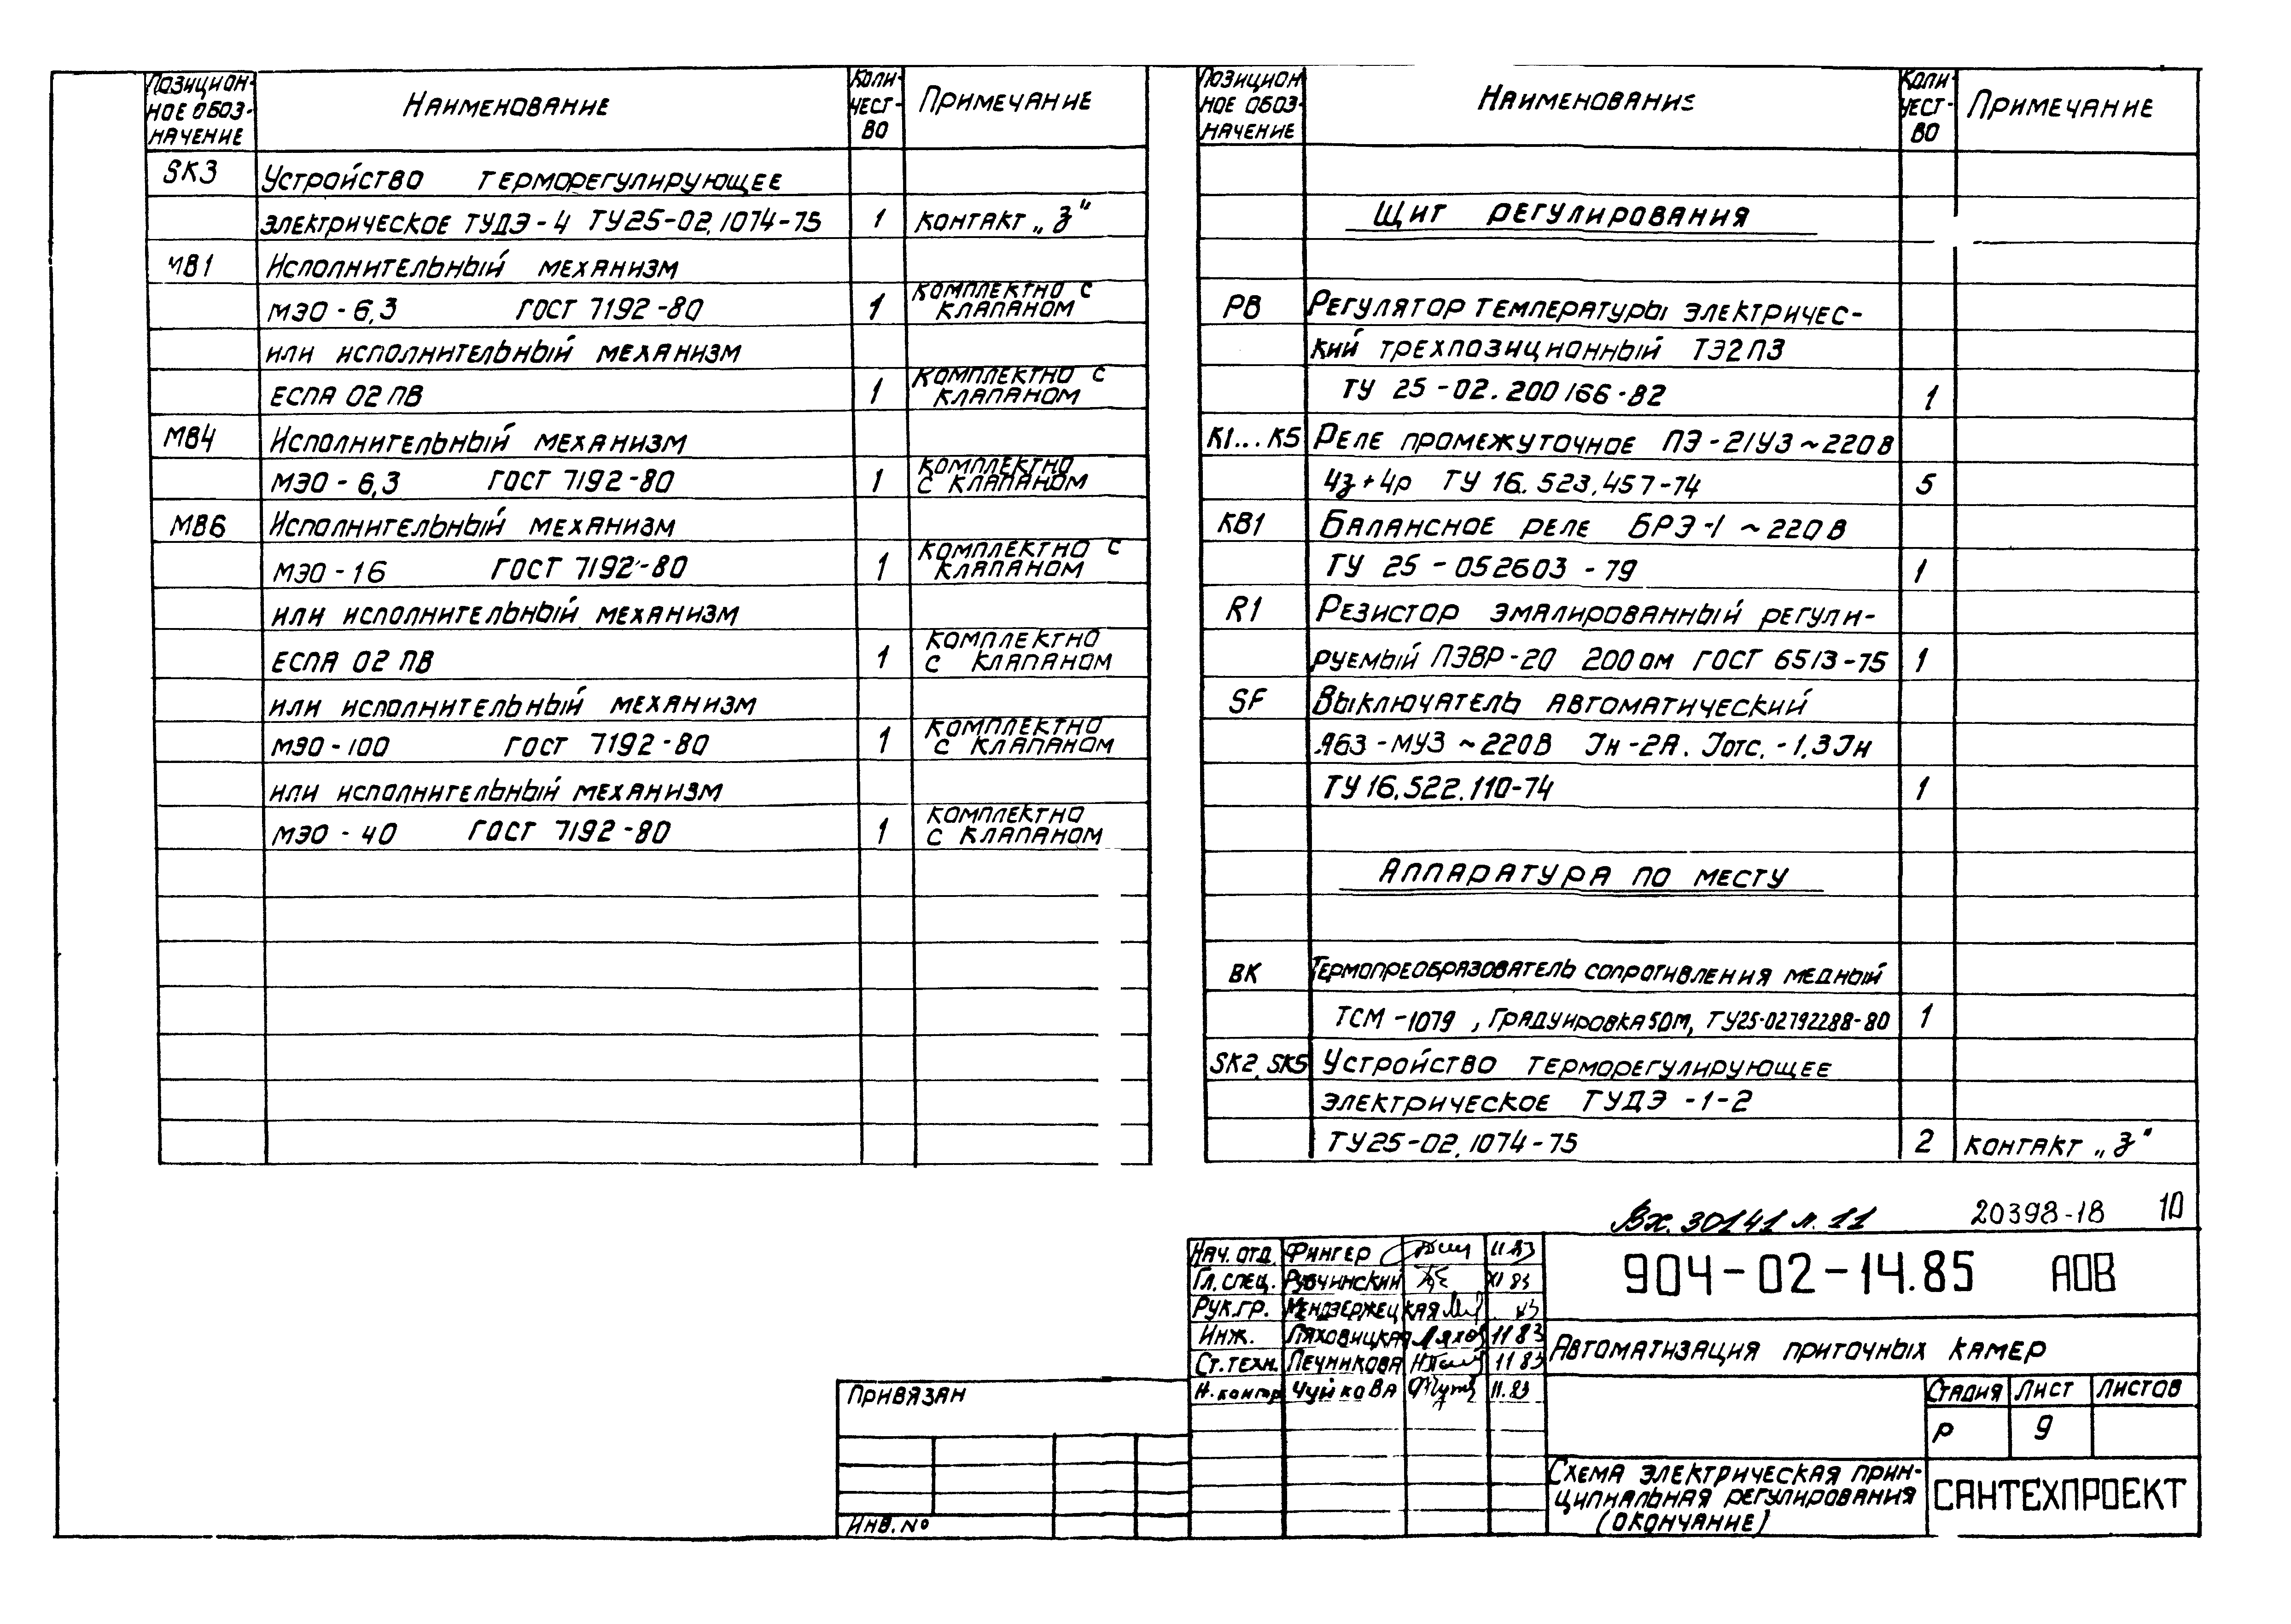 Позицион-
ное обоз-
начение
Наименование
Коли-
чест-
во
Примечание
SK3 Устройство терморегулирующее
электрическое ТУДЭ-4 ТУ25-02.1074-75 1 контакт „З"
МВ1 Исполнительный механизм
МЭО-6,3 ГОСТ 7192-80 1 комплектно с клапаном
или исполнительный механизм
ЕСПА 02 ПВ 1 комплектно с клапаном
МВ4 Исполнительный механизм
МЭО-6,3 ГОСТ 7192-80 1 комплектно с клапаном
МВ6 Исполнительный механизм
МЭО-16 ГОСТ 7192-80 1 комплектно с клапаном
или исполнительный механизм
ЕСПА 02 ПВ 1 комплектно с клапаном
или исполнительный механизм
МЭО-100 ГОСТ 7192-80 1 комплектно с клапаном
или исполнительный механизм
МЭО-40 ГОСТ 7192-80 1 комплектно с клапаном
Позицион
ное обоз-
начение
Наименование
Коли-
чест-
во
Примечание
Щит регулирования
РВ Регулятор температуры электричес-
кий трехпозиционный ТЭ2П3
ТУ 25-02.200166-82 1
К1...К5 Реле промежуточное ПЭ-21У3 ~220В
4з+4р ТУ 16.523.457-74 5
КВ1 Балансное реле БРЭ-1 ~220В
ТУ 25-052603-79 1
R1 Резистор эмалированный регули-
руемый ПЭВР-20 200 ом ГОСТ 6513-75 1
SF Выключатель автоматический
А63-МУ3 ~220В Iн-2А. Iотс.-1,3Iн
ТУ16.522.110-74 1
Аппаратура по месту
ВК Термопреобразователь сопротивления медный
ТСМ-1079, Градуировка 50М, ТУ25-02792288-80 1
SK2, SK5 Устройство терморегулирующее
электрическое ТУДЭ-1-2
ТУ25-02.1074-75 2 контакт „З"
Вх. 30141 л. 11 20398-18 10
Нач. отд. Фингер 11.83
Гл. спец. Рубчинский XI 83
Рук.гр. Мендзержецкая 83
Инж. Ляховицкая 11 83
Ст.техн. Печникова 11 83
Н.контр Чуйкова 11.83
904-02-14.85 АОВ
Автоматизация приточных камер
Стадия Лист Листов
Р 9
Схема электрическая прин-
ципиальная регулирования
(окончание)
САНТЕХПРОЕКТ
Привязан
Инв. №